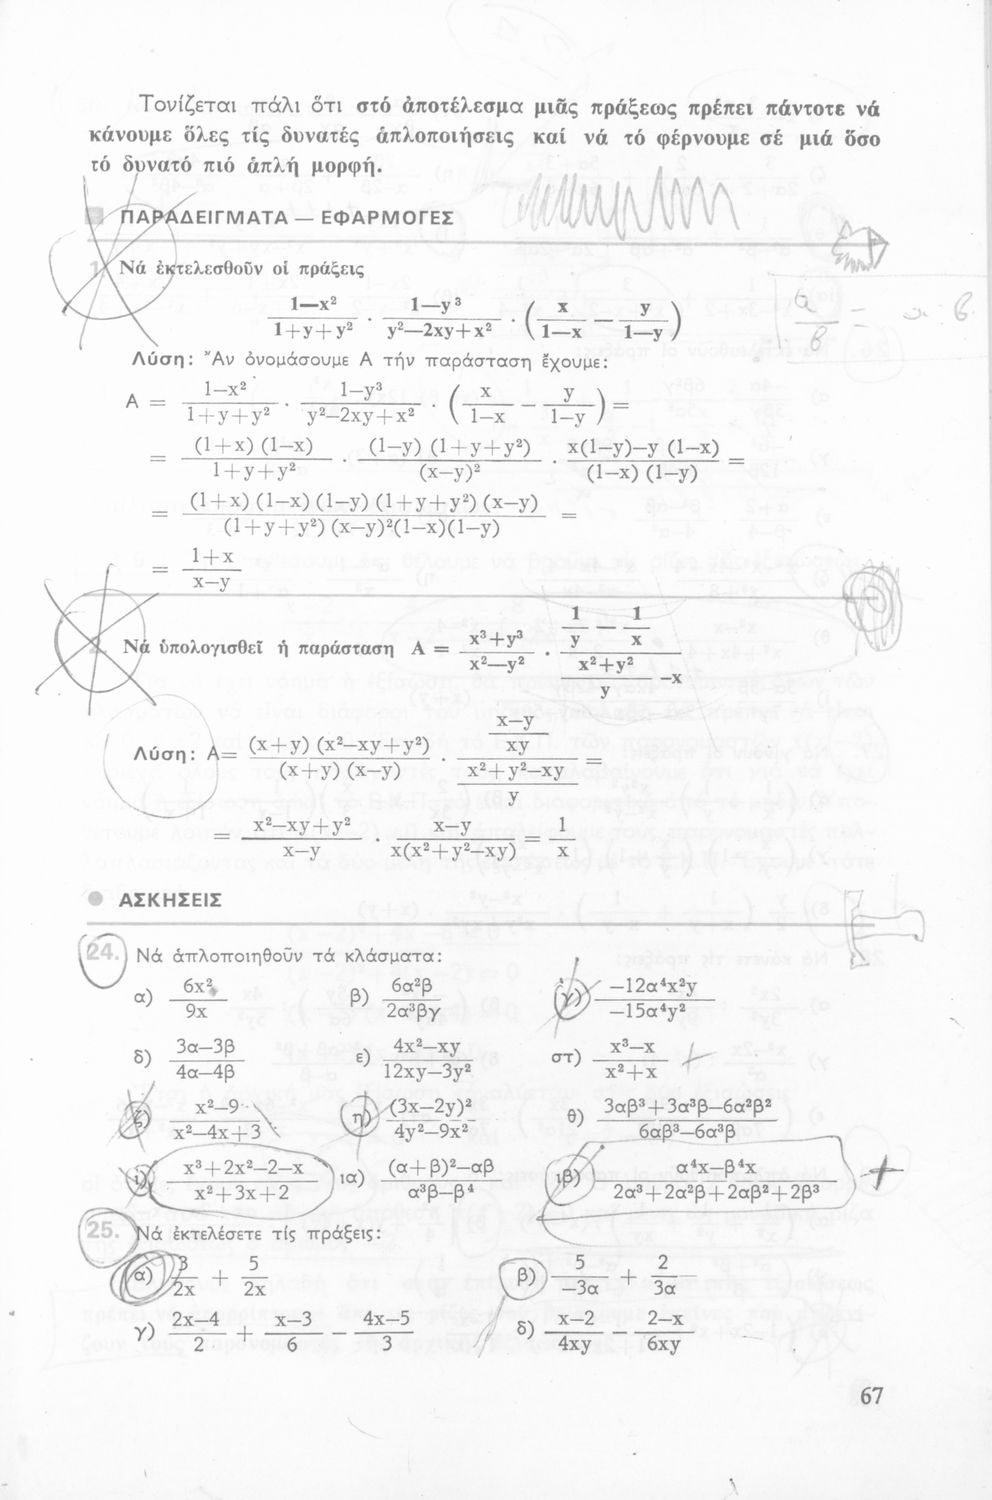 Τονίζεται πάλι ὅτι στό ἀποτέλεσμα μιᾶς πράξεως πρέπει πάντοτε νά
κάνουμε ὅλες τίς δυνατές ἁπλοποιήσεις καί νά τό φέρνουμε σέ μιά ὅσο
τό δυνατό πιό ἁπλή μορφή.
ΠΑΡΑΔΕΙΓΜΑΤΑ — ΕΦΑΡΜΟΓΕΣ
1. Νά ἐκτελεσθοῦν οἱ πράξεις
1—x² / 1+y+y² · 1—y³ / y²—2xy+x² · ( x / 1—x — y / 1—y )
Λύση: Ἄν ὀνομάσουμε Α τήν παράσταση ἔχουμε:
Α = 1–x² / 1+y+y² · 1–y³ / y²–2xy+x² · ( x / 1–x – y / 1–y ) =
= (1+x) (1–x) / 1+y+y² · (1–y) (1+y+y²) / (x–y)² · x(1–y)–y (1–x) / (1–x) (1–y) =
= (1+x) (1–x) (1–y) (1+y+y²) (x–y) / (1+y+y²) (x–y)²(1–x)(1–y) =
= 1+x / x–y
2. Νά ὑπολογισθεῖ ἡ παράσταση Α = x³+y³ / x²—y² · 1 / y — 1 / x / x²+y² / y —x
Λύση: Α= (x+y) (x²–xy+y²) / (x+y) (x–y) · x–y / xy / x²+y²–xy / y =
= x²–xy+y² / x–y · x–y / x(x²+y²–xy) = 1 / x
ΑΣΚΗΣΕΙΣ
24. Νά ἁπλοποιηθοῦν τά κλάσματα:
α) 6x² / 9x β) 6α²β / 2α³βγ γ) –12α⁴x²y / –15α⁴y²
δ) 3α–3β / 4α–4β ε) 4x²–xy / 12xy–3y² στ) x³–x / x²+x
ζ) x²–9 / x²–4x+3 η) (3x–2y)² / 4y²–9x² θ) 3αβ³+3α³β–6α²β² / 6αβ³–6α³β
ι) x³+2x²–2–x / x²+3x+2 ια) (α+β)²–αβ / α³β–β⁴ ιβ) α⁴x–β⁴x / 2α³+2α²β+2αβ²+2β³
25. Νά ἐκτελέσετε τίς πράξεις:
α) 3 / 2x + 5 / 2x β) 5 / –3α + 2 / 3α
γ) 2x–4 / 2 + x–3 / 6 – 4x–5 / 3 δ) x–2 / 4xy + 2–x / 6xy
67